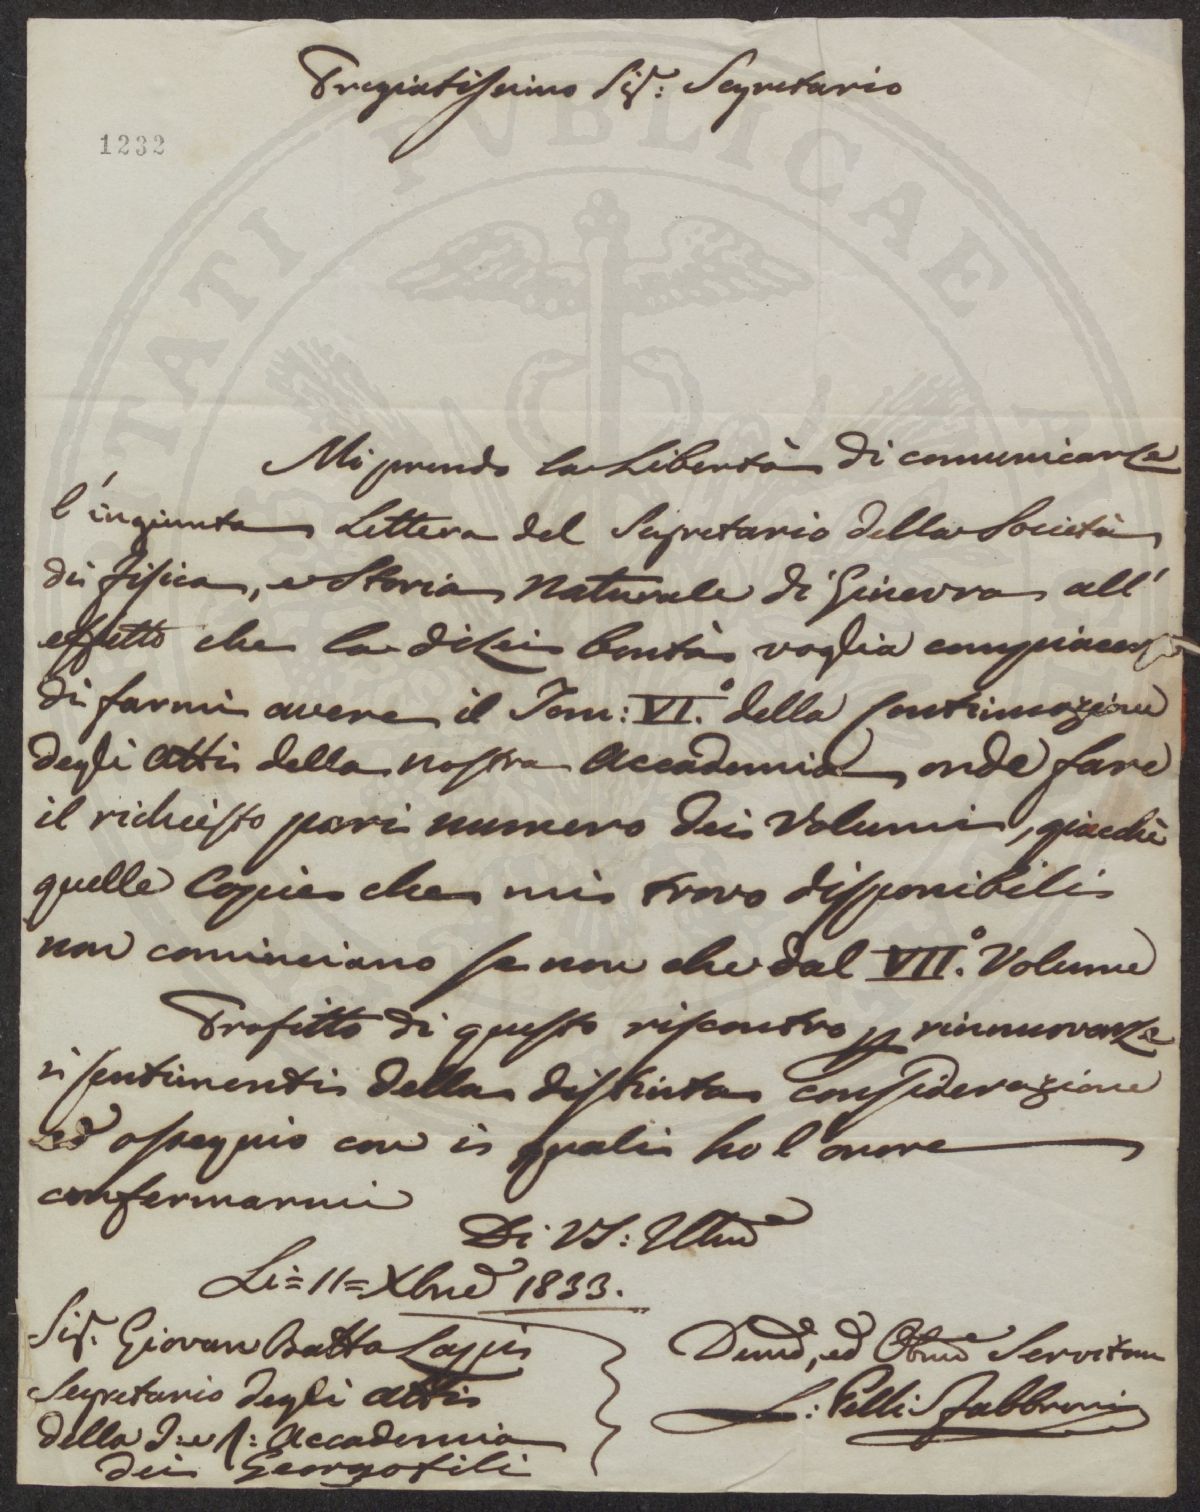 Pregiatissimo Sig: Segretario
1232
Mi prendo la Libertà di comunicarLe
l'ingiunta Lettera del Segretario della Società
di Fisica, e Storia Naturale di Ginevra all'
effetto che la di Lei bontà voglia compiacersi
di farmi avere il Tom: VI.° della Continuazione
degli Atti della nostra Accademia, onde fare
il richiesto pari numero dei Volumi, giacchè
quelle Copie che mi trovo disponibili
non cominciano se non che dal VII.° Volume
Profitto di questo riscontro per rinnuovarLe
i sentimenti della distinta considerazione
ed ossequio con i quali ho l'onore
confermarmi
Di VS: Illma
Li = 11 = Xbre 1833.
Sig. Giovan Batta Lapi
Segretario degli Atti
della I: e R: Accademia
dei Georgofili
Devmo, ed Obmo Servitore
L: Pelli Fabbroni
PUBLICAE